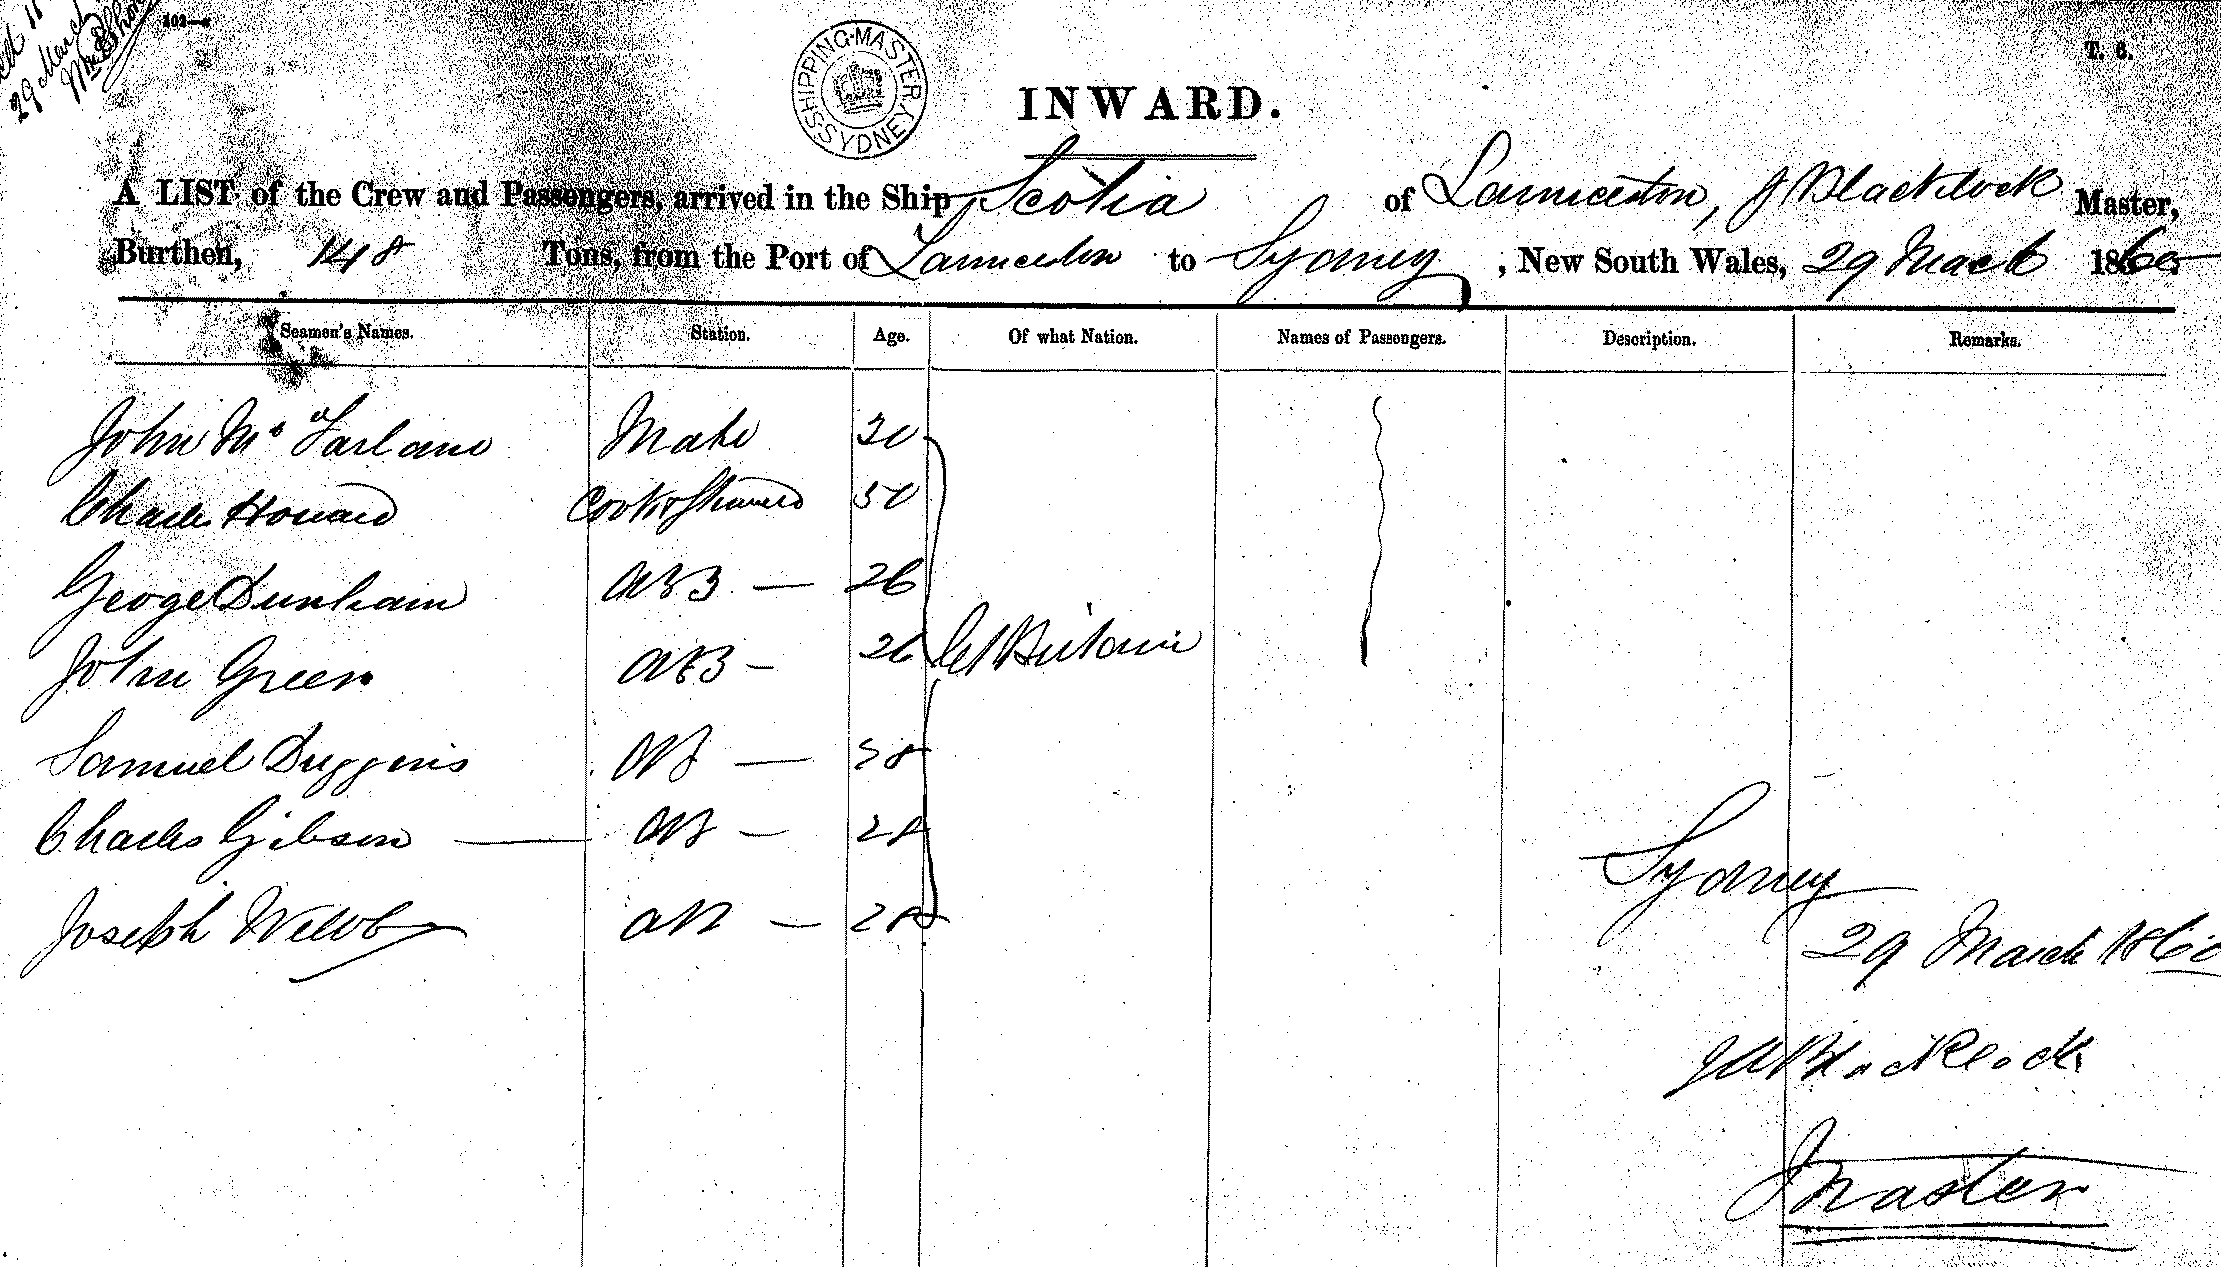 29 March
SHIPPING MASTER SYDNEY
T. 6.
INWARD.
A LIST of the Crew and Passengers, arrived in the Ship Scotia of Launceston, J Blacklock Master,
Burthen, 148 Tons, from the Port of Launceston to Sydney, New South Wales, 29 March 1860
Seamen's Names. Station. Age. Of what Nation. Names of Passengers. Description. Remarks.
John McFarlane Mate 30
Charles Howard Cook & Steward 50
George Dunham AB 26
John Green AB 26 Gt Britain
Samuel Duggins AB 38
Charles Gibson AB 28
Joseph Webb AB 28
Sydney
29 March 1860
J A Blacklock
Master